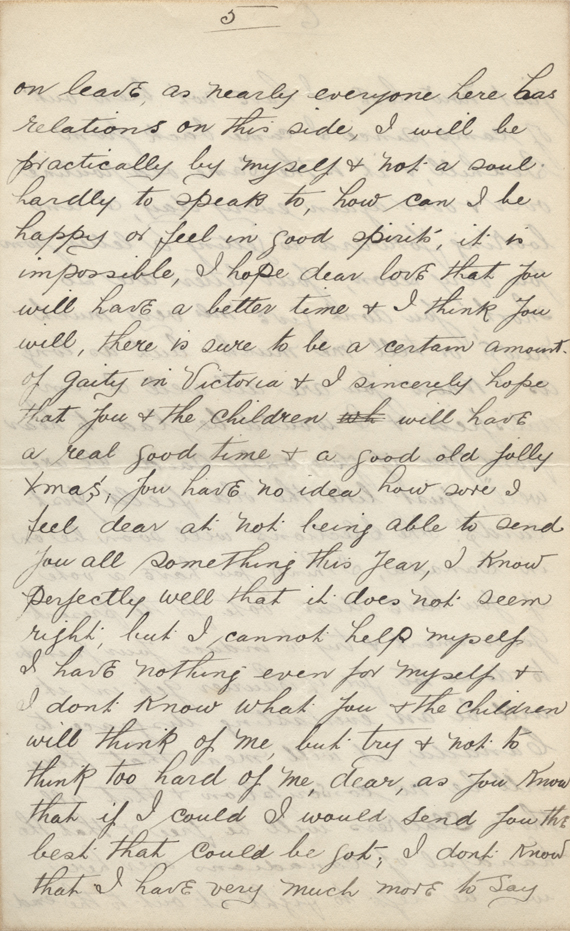 5
on leave, as nearly everyone here has
relations on this side, I will be
practically by myself & not a soul
hardly to speak to, how can I be
happy or feel in good spirits, it is
impossible, I hope dear love that you
will have a better time & I think you
will, there is sure to be a certain amount
of gaity in Victoria & I sincerely hope
that you & the children wh will have
a real good time & a good old jolly
Xmas, you have no idea how sore I
feel dear at not being able to send
you all something this year, I know
perfectly well that it does not seem
right, but I cannot help myself
I have nothing even for myself &
I dont know what you & the children
will think of me, but try & not to
think too hard of me, dear, as you know
that if I could I would send you the
best that could be got, I dont know
that I have very much more to say